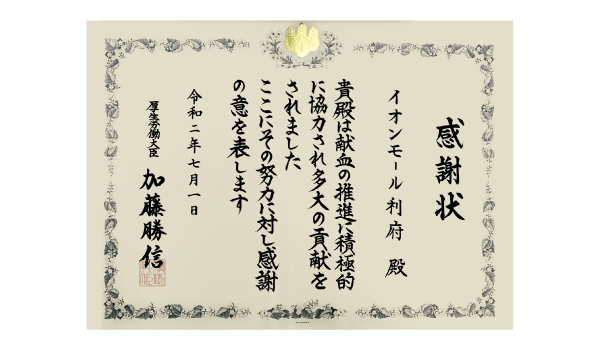 感謝状
イオンモール利府 殿
貴殿は献血の推進に積極的
に協力され多大の貢献を
されました
ここにその努力に対し感謝
の意を表します
令和二年七月一日
厚生労働大臣
加藤勝信